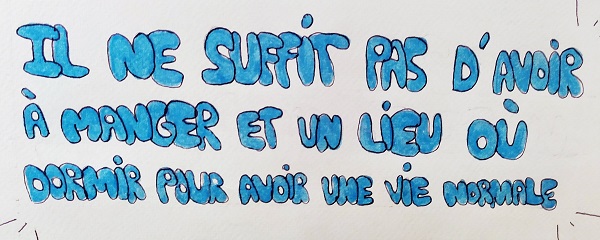 IL NE SUFFIT PAS D'AVOIR
À MANGER ET UN LIEU OÙ
DORMIR POUR AVOIR UNE VIE NORMALE